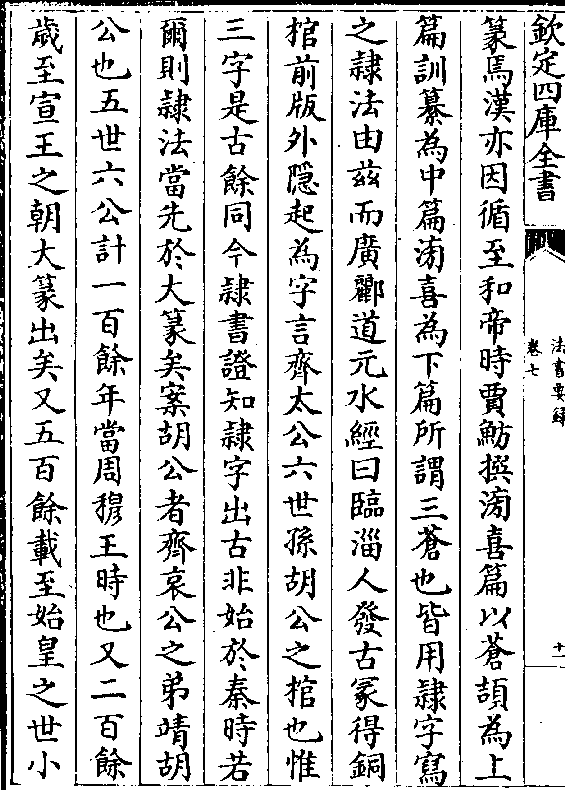 欽定四庫全書
法書要録
卷七
十一
篆焉漢亦因循至和帝時賈魴撰滂喜篇以蒼頡為上
篇訓纂為中篇滂喜為下篇所謂三蒼也皆用隸字寫
之隸法由兹而廣酈道元水經曰臨淄人發古冢得銅
棺前版外隠起為字言齊太公六世孫胡公之棺也惟
三字是古餘同今隸書證知隸字出古非始於秦時若
爾則隸法當先於大篆矣案胡公者齊哀公之弟靖胡
公也五世六公計一百餘年當周穆王時也又二百餘
歳至宣王之朝大篆出矣又五百餘載至始皇之世小